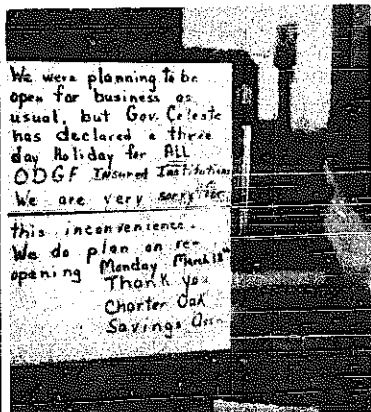 We were planning to be
open for business as
usual, but Gov. Celeste
has declared a three
day Holiday for ALL
ODGF Insured Institutions
We are very sorry for
this inconvenience.
We do plan on re-
opening Monday March 18th
Thank you
Charter Oak
Savings Assn